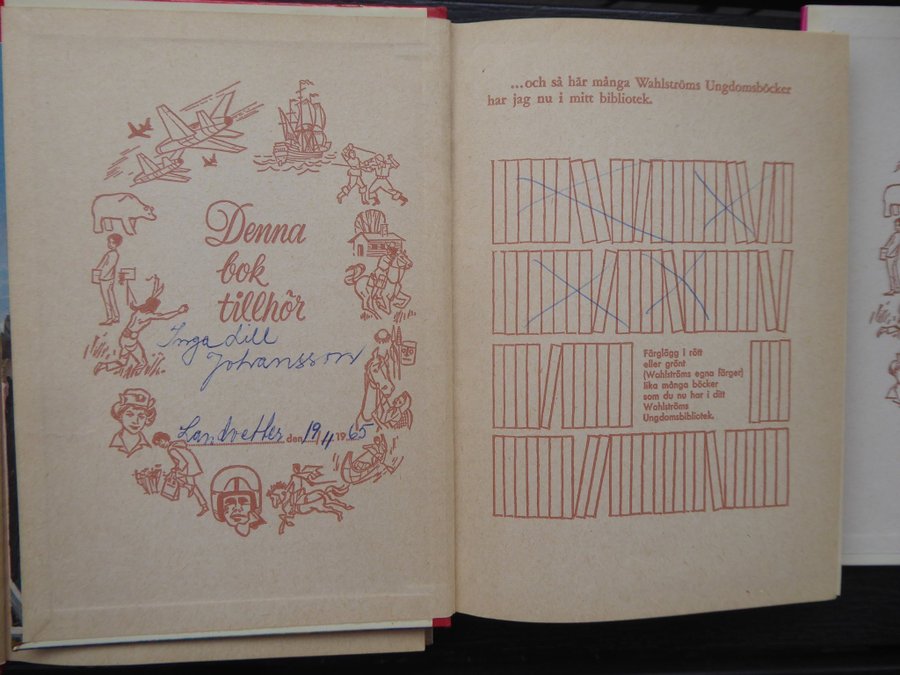 Denna
bok
tillhör
Inga dill
Johansson
Landvetter den 19/4 1965
...och så här många Wahlströms Ungdomsböcker
har jag nu i mitt bibliotek.
Färglägg i rött
eller grönt
(Wahlströms egna färger)
lika många böcker
som du nu har i ditt
Wahlströms
Ungdomsbibliotek.